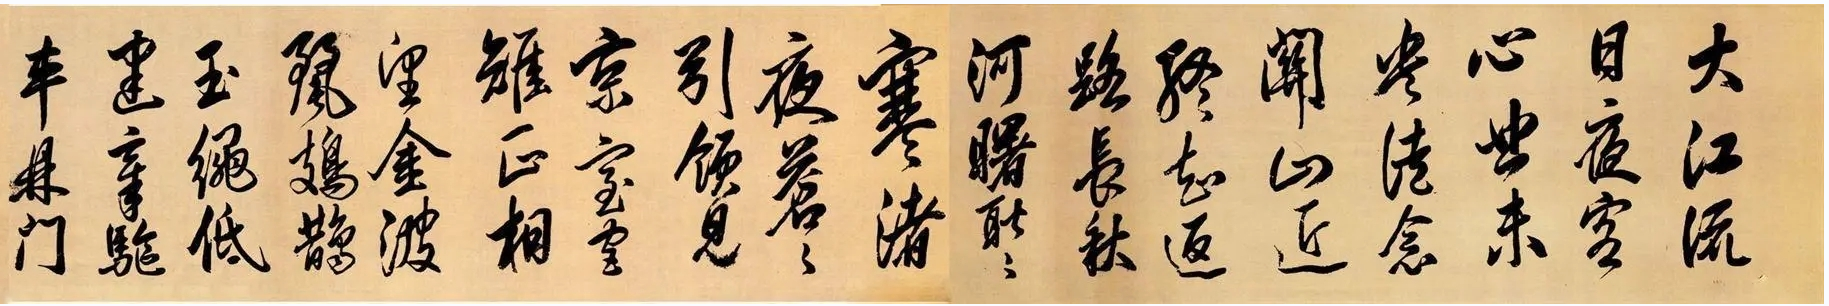 大江流
日夜客
心悲未
央徒念
關山近
終知返
路長秋
河曙耿〻
寒渚
夜蒼〻
引領見
京室宮
雉正相
望金波
麗鳷鵲
玉繩低
建章驅
車鼎門